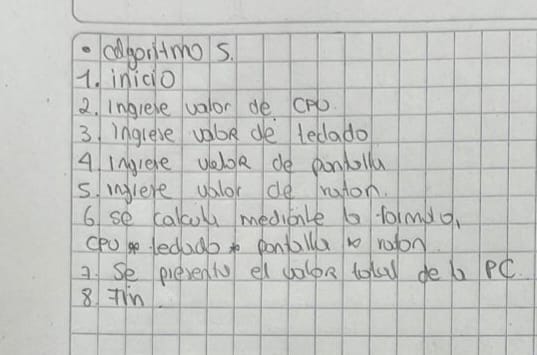 • algoritmo S.
1. inicio
2. Ingrese valor de CPU.
3. Ingrese valor de teclado
4. Ingrese valor de pantalla
5. ingrese valor de raton.
6. se calcula mediante la formula,
CPU + teclado + pantalla + raton
7. Se presenta el valor total de la PC.
8. Fin.